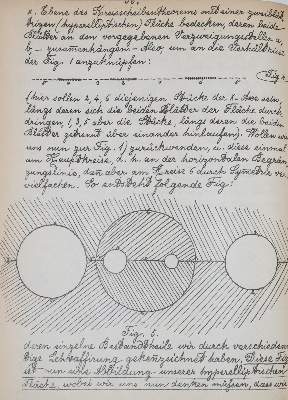 z. Ebene des Kreisscheibentheorems mit einer zweiblätt-
rigen (hyperelliptischen) Fläche bedecken, deren beide
Blätter an den vorgegebenen Verzweigungsstellen a,
b, – zusammenhängen. – Also, um an die Verhältnisse
der Fig. 1 anzuknüpfen:
Fig 4.
(hier sollen 2, 4, 6 diejenigen Stücke der x-Axe sein
längs deren sich die beiden Blätter der Fläche durch-
dringen, 1, 3, 5 aber die Stücke, längs deren die beiden
Blätter getrennt über einander hinlaufen). Wollen wir
uns nun zur Fig. 1) zurückwenden, u. diese einmal
am Hauptkreise, d. h. an der horizontalen Begren-
zungslinie, dan aber am Kreise 6 durch Symetrie ver-
vielfachen. So entsteht folgende Fig:
Fign 5.
deren einzelne Bestandtheile wir durch verschieden-
artige Schraffirung gekenzeichnet haben. Diese Fig
ist nun eine Abbildung unserer hyperelliptischen
Fläche, wobei wir uns nun denken müssen, dass wir